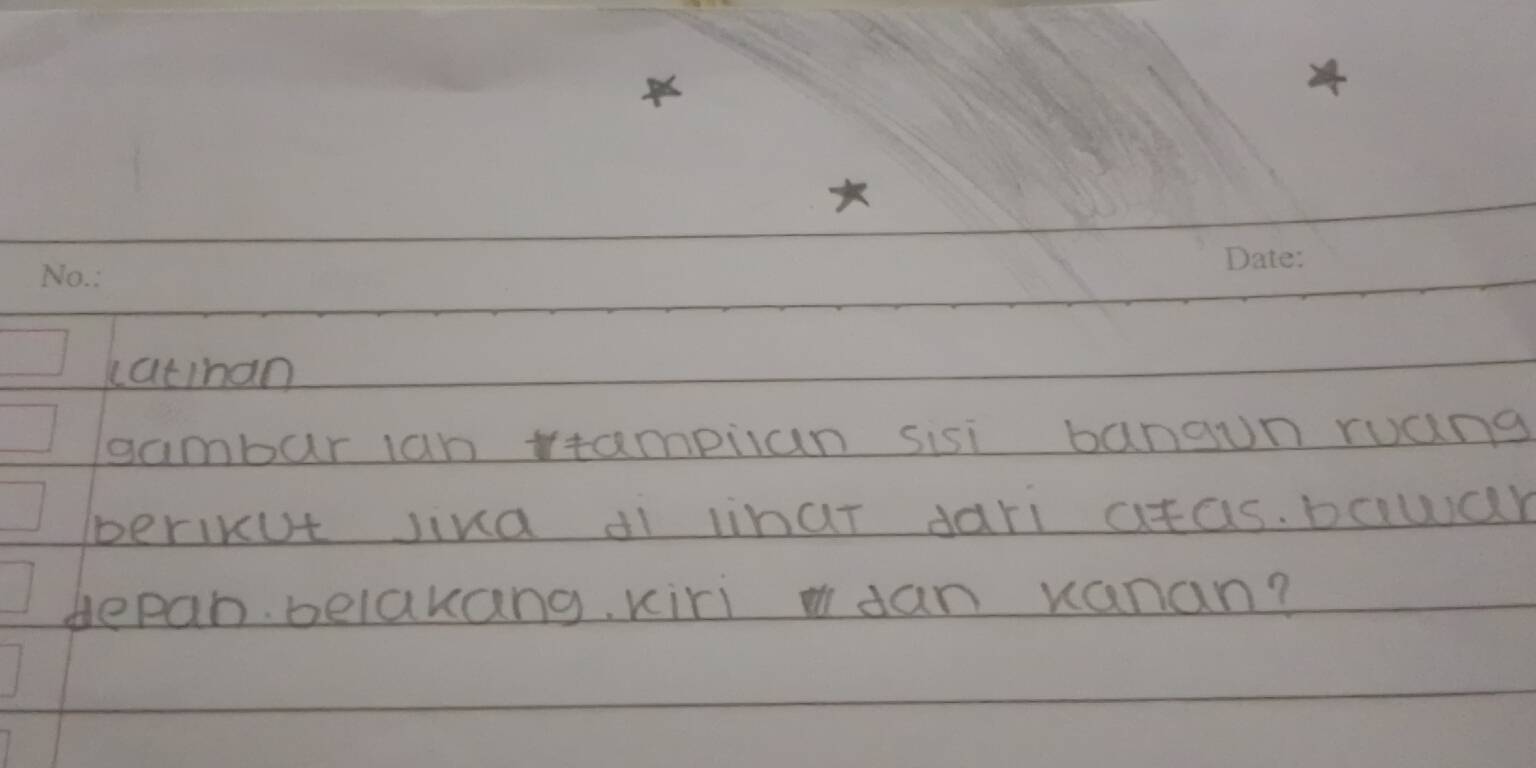 No.:
Date:
Latihan
gambar lah tampilan sisi bangun ruang
berikut jika di lihat dari atas. bawah
depan. belakang. kiri dan kanan?